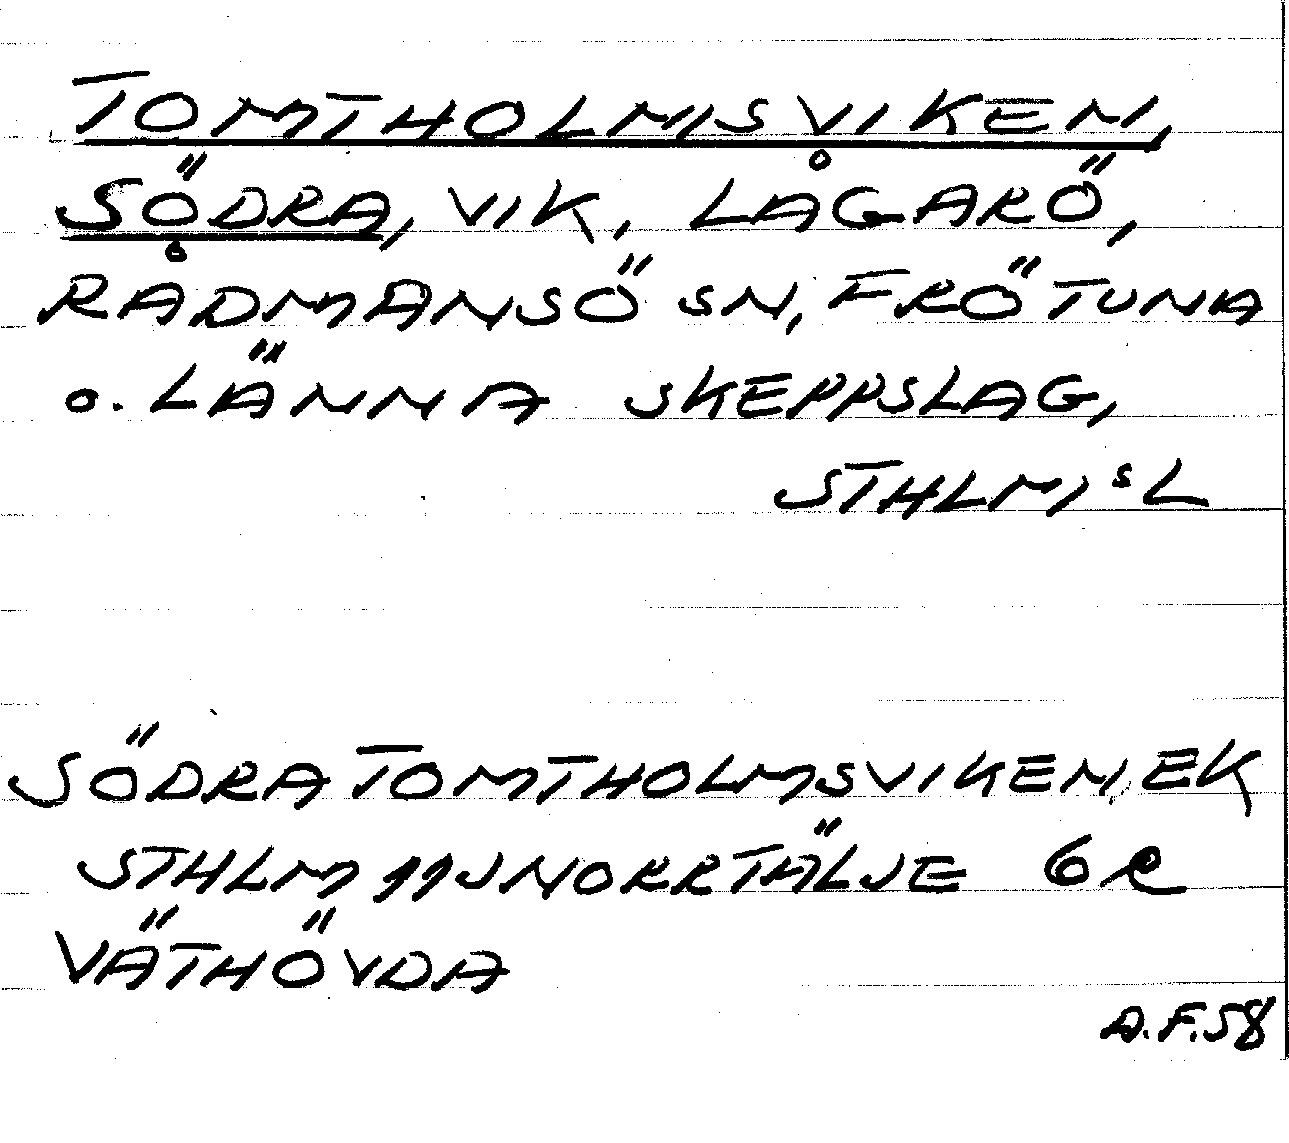 TOMTHOLMSVIKEN,
SÖDRA, VIK, LÅGARÖ,
RÅDMANSÖ SN, FRÖTUNA
o. LÄNNA SKEPPSLAG,
STHLMS L
SÖDRA TOMTHOLMSVIKEN, EK
STHLM 11J NORRTÄLJE 6R
VÄTHÖVDA
A.F.58